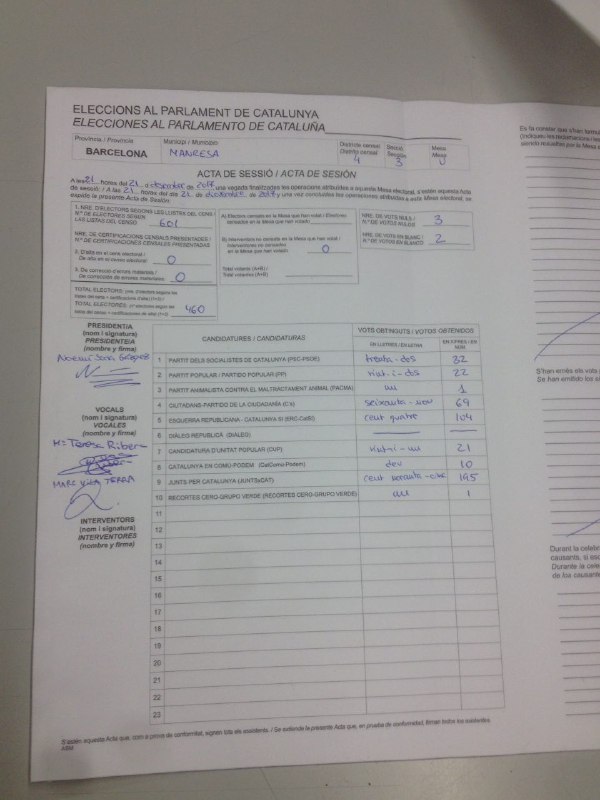 ELECCIONS AL PARLAMENT DE CATALUNYA
ELECCIONES AL PARLAMENTO DE CATALUÑA
Província / Provincia
BARCELONA
Municipi / Municipio
MANRESA
Districte censal
Distrito censal
4
Secció
Sección
3
Mesa
Mesa
U
ACTA DE SESSIÓ / ACTA DE SESIÓN
A les 21 hores del 21 de desembre de 2017 una vegada finalitzades les operacions atribuïdes a aquesta Mesa electoral, s'estén aquesta acta
de sessió: / A las 21 horas del día 21 de diciembre de 2017, y una vez concluidas las operaciones atribuidas a esta Mesa electoral, se
expide la presente Acta de Sesión:
1. NRE. D'ELECTORS SEGONS LES LLISTES DEL CENS /
N.º DE ELECTORES SEGÚN
LAS LISTAS DEL CENSO
601
NRE. DE CERTIFICACIONS CENSALS PRESENTADES /
N.º DE CERTIFICACIONES CENSALES PRESENTADAS
2. D'alta en el cens electoral /
De alta en el censo electoral
0
3. De correcció d'errors materials /
De corrección de errores materiales
0
TOTAL ELECTORS:
TOTAL ELECTORES:
460
A) Electors censats en la Mesa que han votat / Electores
censados en la Mesa que han votado
B) Interventors no censats en la Mesa que han votat /
Interventores no censados
en la Mesa que han votado
0
Total votants (A+B) /
Total votantes (A+B)
NRE. DE VOTS NULS /
N.º DE VOTOS NULOS
3
NRE. DE VOTS EN BLANC /
N.º DE VOTOS EN BLANCO
2
PRESIDENTIA
(nom i signatura)
PRESIDENTE/A
(nombre y firma)
VOCALS
(nom i signatura)
VOCALES
(nombre y firma)
Mª Teresa Ribera
MARC VILA TERRA
INTERVENTORS
(nom i signatura)
INTERVENTORES
(nombre y firma)
CANDIDATURES / CANDIDATURAS
VOTS OBTINGUTS / VOTOS OBTENIDOS
EN LLETRES / EN LETRA
EN XIFRES / EN NÚM.
1 PARTIT DELS SOCIALISTES DE CATALUNYA (PSC-PSOE) trenta-dos 32
2 PARTIT POPULAR / PARTIDO POPULAR (PP) vint-i-dos 22
3 PARTIT ANIMALISTA CONTRA EL MALTRACTAMENT ANIMAL (PACMA) un 1
4 CIUTADANS-PARTIDO DE LA CIUDADANÍA (C's) seixanta-nou 69
5 ESQUERRA REPUBLICANA - CATALUNYA SÍ (ERC-CatSí) cent quatre 104
6 DIÀLEG REPUBLICÀ (DIÀLEG)
7 CANDIDATURA D'UNITAT POPULAR (CUP) vint-i-un 21
8 CATALUNYA EN COMÚ-PODEM (CatComú-Podem) deu 10
9 JUNTS PER CATALUNYA (JUNTSxCAT) cent noranta-cinc 195
10 RECORTES CERO-GRUPO VERDE (RECORTES CERO-GRUPO VERDE) un 1
11
12
13
14
15
16
17
18
19
20
21
22
23
S'estén aquesta Acta que, com a prova de conformitat, signen tots els assistents. / Se extiende la presente Acta que, en prueba de conformidad, firman todos los asistentes.
Es fa constar que s'han formul
(indiqueu les reclamacions i les
siendo resueltas por la Mesa el
S'han emès els vots
Se han emitido los
Durant la celebr
causants, si es
Durante la cele
de los causante